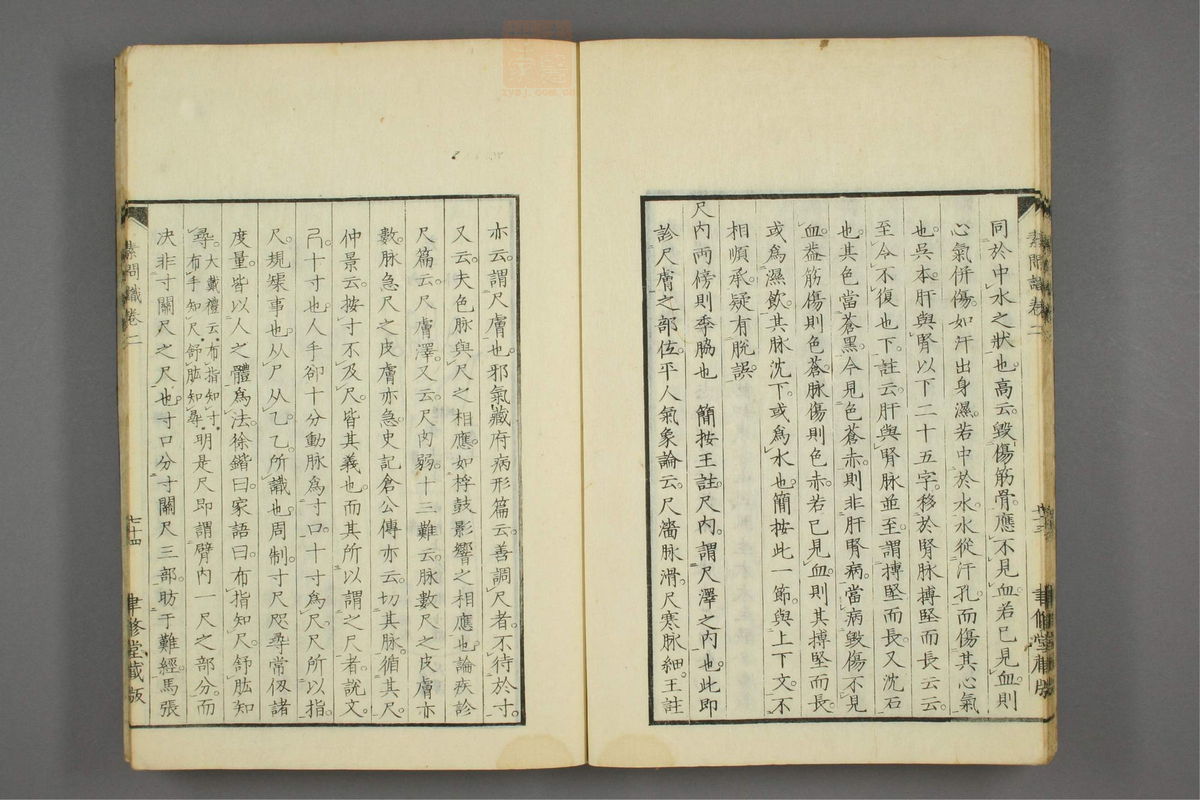 素問識卷二
同於中水之狀也。高云。毀傷筋骨。應不見血。若已見血。則
心氣併傷。如汗出身濕。若中於水。水從汗孔而傷其心氣
也。吳本。肝與腎以下二十五字。移於腎脉搏堅而長云云
至今不復也。下註云。肝與腎脉並至。謂搏堅而長。又沈石
也。其色當蒼黑。今見色蒼赤。則非肝腎病。當病毀傷。不見
血。蓋筋傷則色蒼。脉傷則色赤。若已見血。則其搏堅而長。
或為濕飲。其脉沈下。或為水也。簡按此一節。與上下文。不
相順承。疑有脫誤。
尺內兩傍則季脇也 簡按王註尺內。謂尺澤之內也。此即
診尺膚之部位。平人氣象論云。尺濇脉滑。尺寒脉細。王註
亦云。謂尺膚也。邪氣藏府病形篇云。善調尺者。不待於寸。
又云。夫色脉與尺之相應。如桴鼓影響之相應也。論疾診
尺篇云。尺膚澤。又云。尺肉弱。十三難云。脉數。尺之皮膚亦
數。脉急。尺之皮膚亦急。史記倉公傳亦云。切其脉。循其尺。
仲景云。按寸不及尺。皆其義也。而其所以謂之尺者。說文。
尺。十寸也。人手卻十分動脉為寸口。十寸為尺。尺所以指
尺。規榘事也。从尸从乙。乙。所識也。周制。寸尺咫尋常仭諸
度量。皆以人之體為法。徐鍇曰。家語曰。布指知尺。舒肱知
尋。大戴禮云。布指知寸。布手知尺。舒肱知尋。明是尺即謂臂內一尺之部分。而
決非寸關尺之尺也。寸口分寸關尺三部。昉于難經。馬張
素問識卷二
七十四
聿修堂藏版